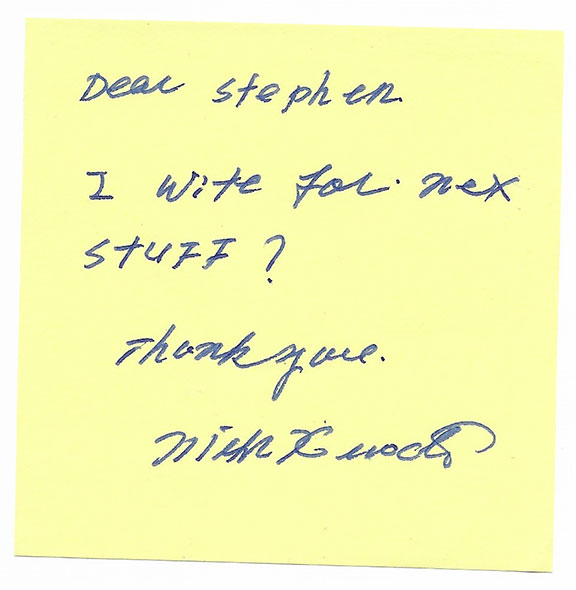 Dear Stephen
I wite for nex
stuff?
Thank you.
Nick